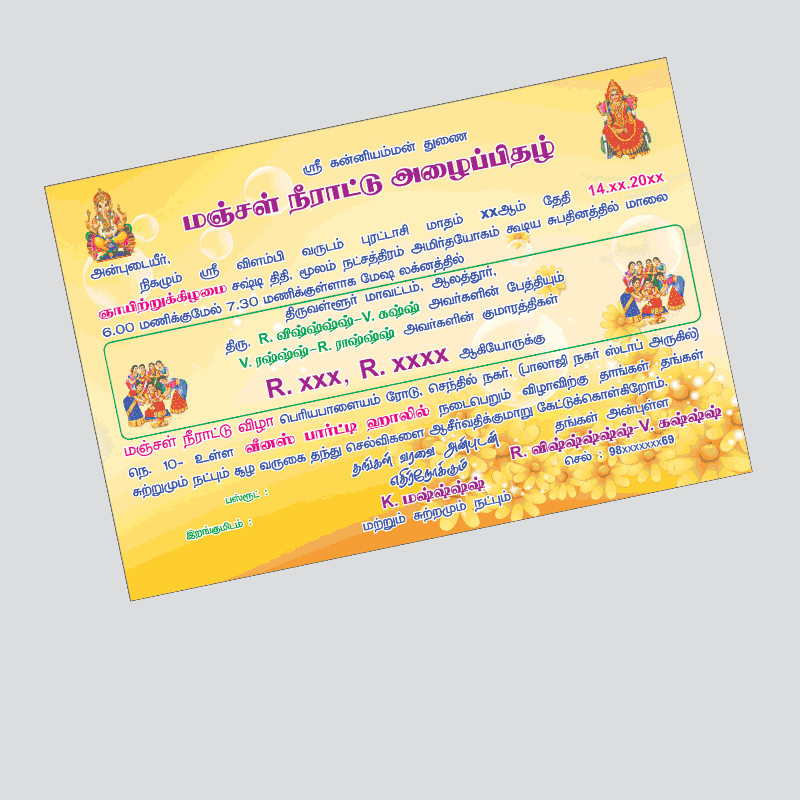 ஸ்ரீ கன்னியம்மன் துணை
மஞ்சள் நீராட்டு அழைப்பிதழ்
அன்புடையீர்,
நிகழும் ஸ்ரீ விளம்பி வருடம் புரட்டாசி மாதம் xxஆம் தேதி 14.xx.20xx
ஞாயிற்றுக்கிழமை சஷ்டி திதி, மூலம் நட்சத்திரம் அமிர்தயோகம் கூடிய சுபதினத்தில் மாலை
6.00 மணிக்குமேல் 7.30 மணிக்குள்ளாக மேஷ லக்னத்தில்
திருவள்ளூர் மாவட்டம், ஆலத்தூர்,
திரு. R. விஷ்ஷ்ஷ்ஷ்-V. கஷ்ஷ் அவர்களின் பேத்தியும்
V. ரஷ்ஷ்ஷ்-R. ராஷ்ஷ்ஷ் அவர்களின் குமாரத்திகள்
R. xxx, R. xxxx ஆகியோருக்கு
மஞ்சள் நீராட்டு விழா பெரியபாளையம் ரோடு, செந்தில் நகர், (பாலாஜி நகர் ஸ்டாப் அருகில்)
நெ. 10- உள்ள வீனஸ் பார்ட்டி ஹாலில் நடைபெறும் விழாவிற்கு தாங்கள் தங்கள்
சுற்றுமும் நட்பும் சூழ வருகை தந்து செல்விகளை ஆசீர்வதிக்குமாறு கேட்டுக்கொள்கிறோம்.
தங்கள் வரவை அன்புடன்
எதிர்நோக்கும்
K. மஷ்ஷ்ஷ்ஷ்
மற்றும் சுற்றமும் நட்பும்
தங்கள் அன்புள்ள
R. விஷ்ஷ்ஷ்ஷ்ஷ்-V. கஷ்ஷ்ஷ்ஷ்
செல் : 98xxxxxxx69
பஸ்ரூட் :
இறங்குமிடம் :